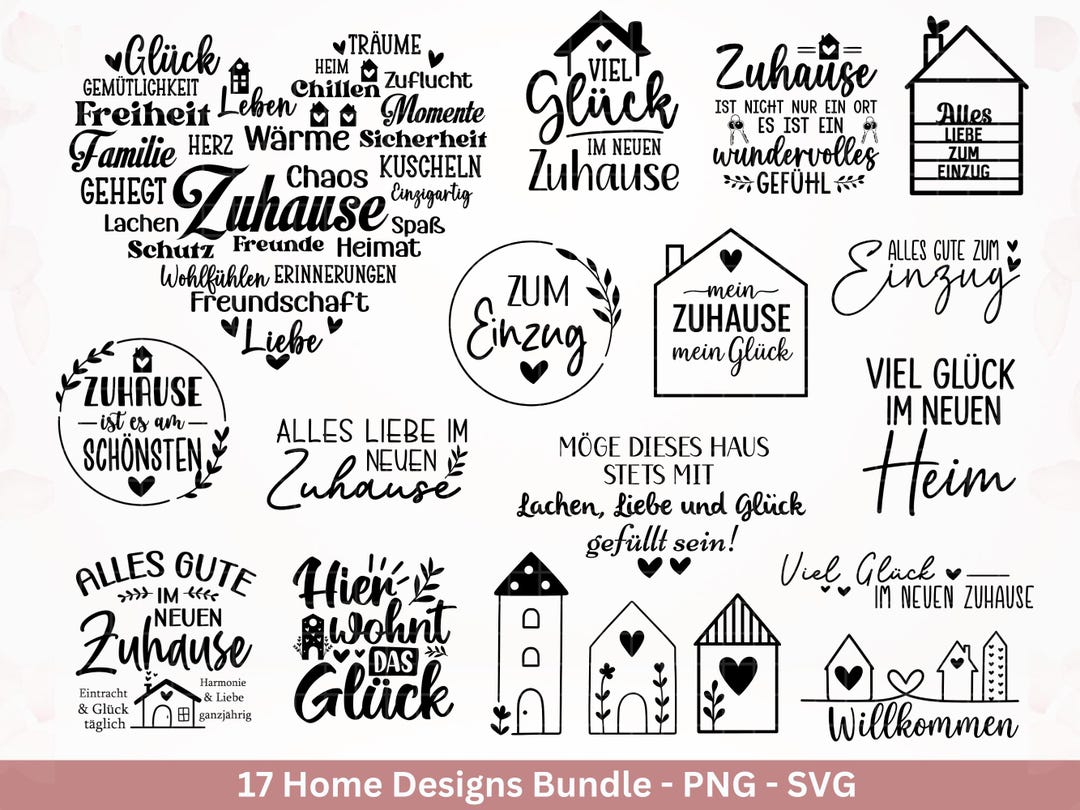 Glück
GEMÜTLICHKEIT
Freiheit
Familie
GEHEGT
Leben
HERZ
TRÄUME
HEIM
Chillen
Zuflucht
Momente
Wärme
Sicherheit
Chaos
KUSCHELN
Einzigartig
Zuhause
Lachen
Spaß
Schutz
Freunde
Heimat
Wohlfühlen
ERINNERUNGEN
Freundschaft
Liebe
VIEL
Glück
IM NEUEN
Zuhause
Zuhause
IST NICHT NUR EIN ORT
ES IST EIN
wundervolles
GEFÜHL
Alles
LIEBE
ZUM
EINZUG
ZUM
Einzug
mein
ZUHAUSE
mein Glück
ALLES GUTE ZUM
Einzug
ZUHAUSE
ist es am
SCHÖNSTEN
ALLES LIEBE IM
NEUEN
Zuhause
MÖGE DIESES HAUS
STETS MIT
Lachen, Liebe und Glück
gefüllt sein!
VIEL GLÜCK
IM NEUEN
Heim
ALLES GUTE
IM
NEUEN
Zuhause
Eintracht
& Glück
täglich
Harmonie
& Liebe
ganzjährig
Hier
wohnt
DAS
Glück
Viel Glück
IM NEUEN ZUHAUSE
Willkommen
17 Home Designs Bundle - PNG - SVG